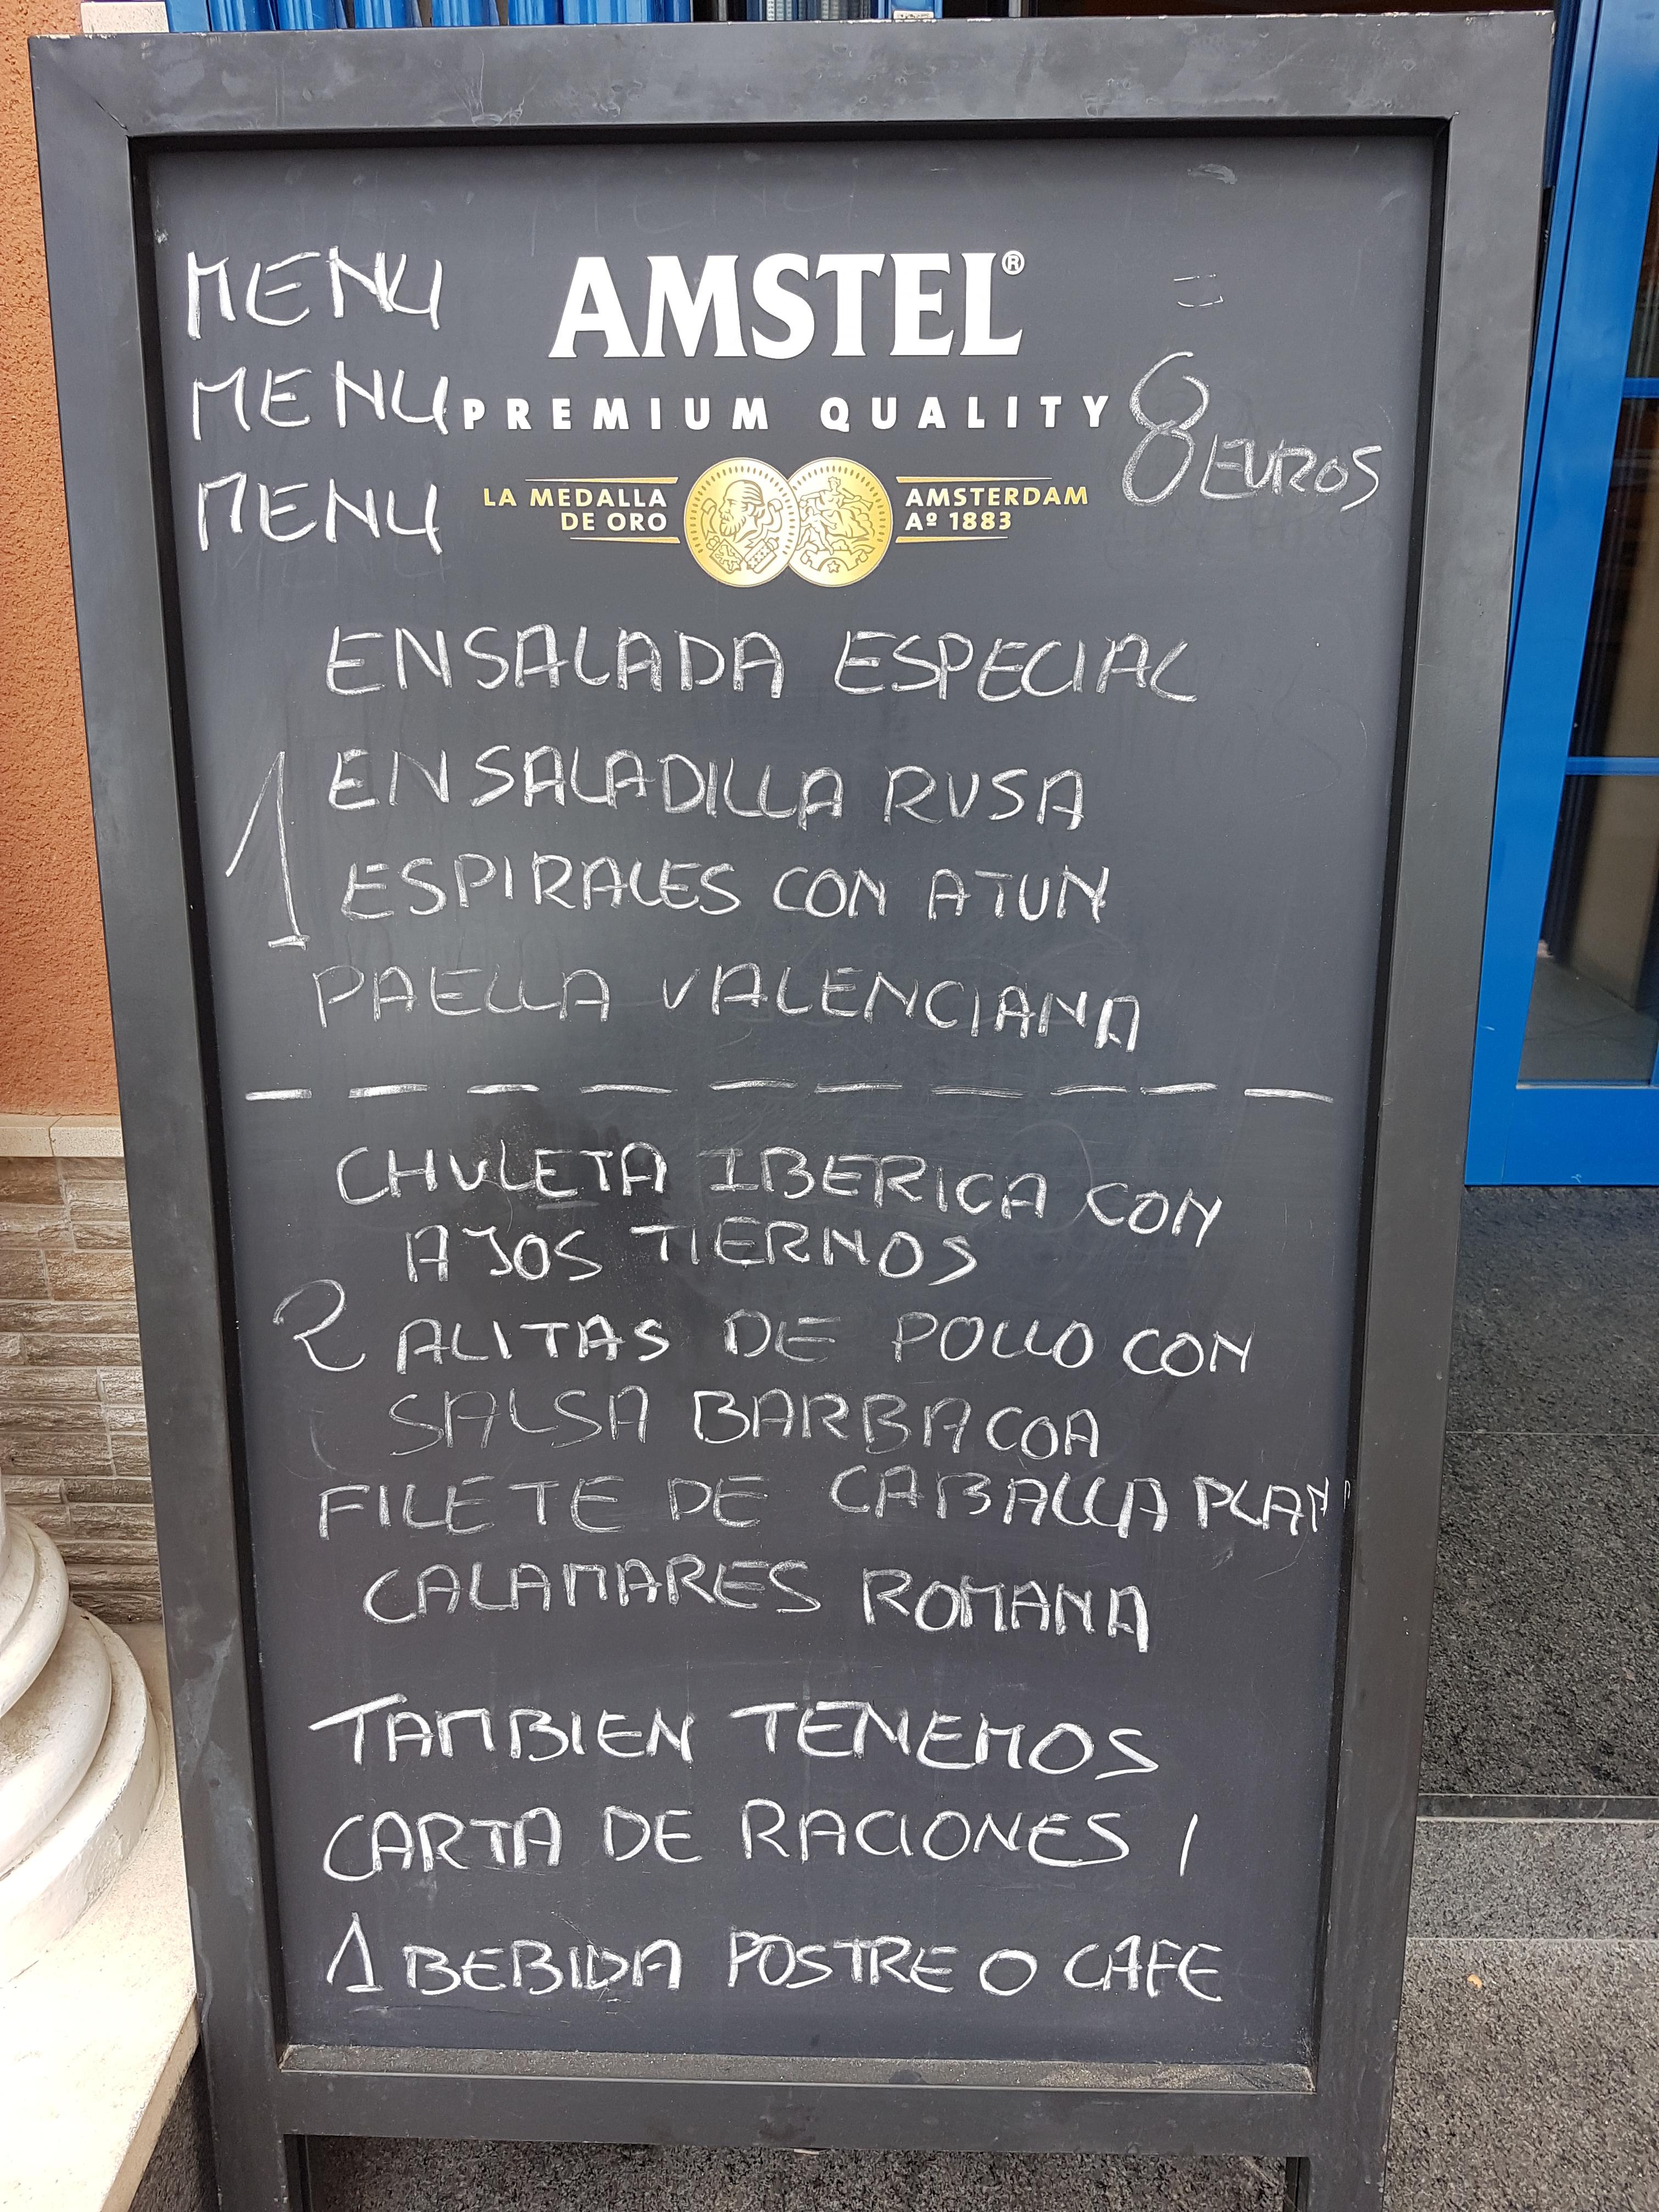 MENU
AMSTEL®
MENU
PREMIUM QUALITY
8 EUROS
MENU
LA MEDALLA
DE ORO
AMSTERDAM
Aº 1883
ENSALADA ESPECIAL
1
ENSALADILLA RUSA
ESPIRALES CON ATUN
PAELLA VALENCIANA
CHULETA IBERICA CON
AJOS TIERNOS
2
ALITAS DE POLLO CON
SALSA BARBACOA
FILETE DE CABALLA PLAN
CALAMARES ROMANA
TAMBIEN TENEMOS
CARTA DE RACIONES /
1 BEBIDA POSTRE O CAFE